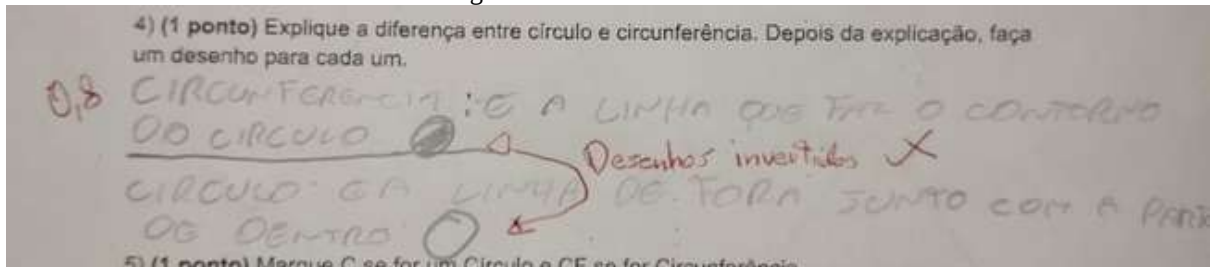 4) (1 ponto) Explique a diferença entre círculo e circunferência. Depois da explicação, faça
um desenho para cada um.
0,8 CIRCUNFERENCIA : E A LINHA QUE FAZ O CONTORNO
DO CIRCULO
Desenhos invertidos X
CIRCULO: E A LINHA DE FORA JUNTO COM A PARTE
DE DENTRO
5) (1 ponto) Marque C se for um Círculo e CF se for Circunferência